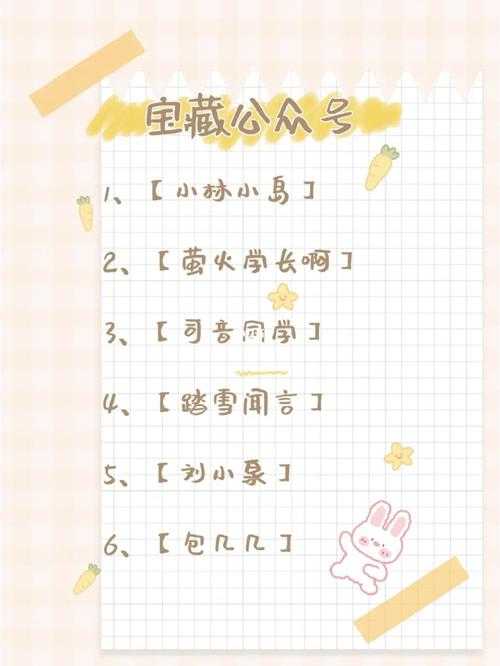 宝藏公众号
1、【小林小岛】
2、【萤火学长啊】
3、【司音同学】
4、【踏雪闻言】
5、【刘小枭】
6、【包几几】